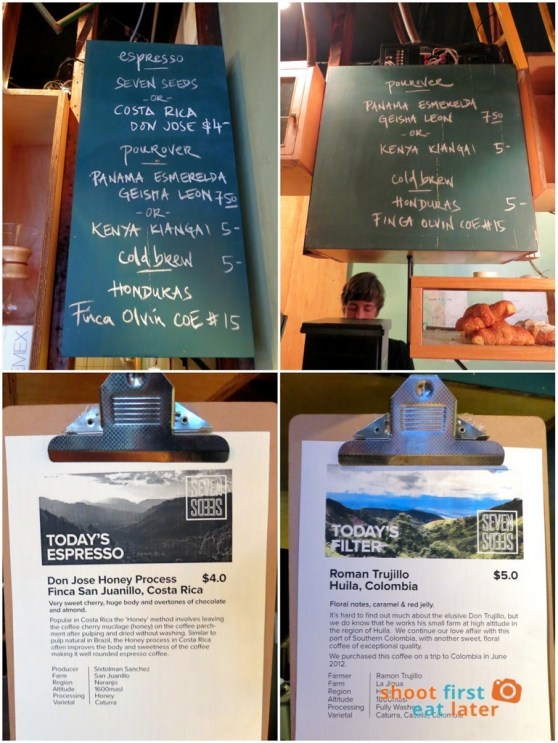 espresso
SEVEN SEEDS
-OR-
COSTA RICA
DON JOSE $4-
POUROVER
PANAMA ESMERELDA
GEISHA LEON 7.50
-OR-
KENYA KIANGAI 5-
Cold brew 5-
HONDURAS
Finca Olvin COE #15
MEX
POUROVER
PANAMA ESMERELDA
GEISHA LEON 7.50
-OR-
KENYA KIANGAI 5-
Cold brew
HONDURAS 5-
FINCA OLVIN COE #15
SEVEN
SEEDS
TODAY'S
ESPRESSO
Don Jose Honey Process $4.0
Finca San Juanillo, Costa Rica
Very sweet cherry, huge body and overtones of chocolate
and almond.
Popular in Costa Rica the 'Honey' method involves leaving
the coffee cherry mucilage (honey) on the coffee parch-
ment after pulping and dried without washing. Similar to
pulp natural in Brazil, the Honey process in Costa Rica
often improves the body and sweetness of the coffee
making it well rounded espresso coffee.
Producer Sixtolman Sanchez
Farm San Juanillo
Region Naranjo
Altitude 1600masl
Processing Honey
Varietal Caturra
SEVEN
SEEDS
TODAY'S
FILTER
Roman Trujillo $5.0
Huila, Colombia
Floral notes, caramel & red jelly.
It's hard to find out much about the elusive Don Trujillo, but
we do know that he works his small farm at high altitude in
the region of Huila. We continue our love affair with this
part of Southern Colombia, with another sweet, floral
coffee of exceptional quality.
We purchased this coffee on a trip to Colombia in June
2012.
Farmer Ramon Trujillo
Farm La Jigua
Region
Altitude
Processing Fully Washed
Varietal Caturra, Colombia
shoot first
eat later